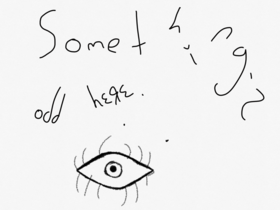 Something?
odd here.